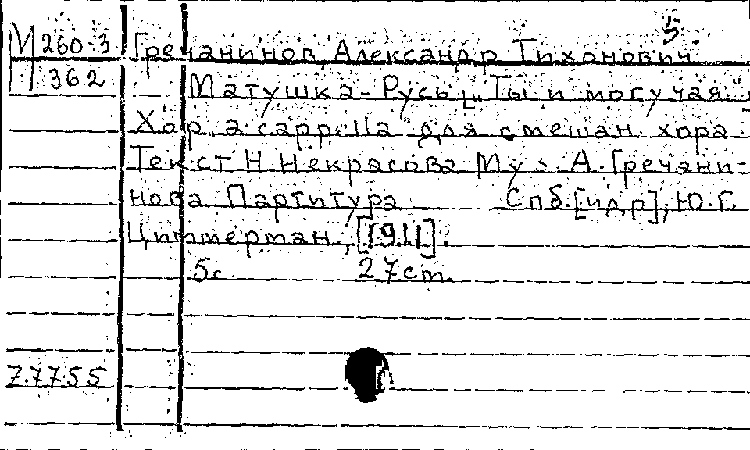 5
М 260.3 Гречанинов, Александр Тихонович.
362 Матушка-Русь [„Ты и могучая..."
Хор a cappella для смешан. хора.
Текст Н. Некрасова Муз. А. Гречани-
нова Партитура Спб. [и др], Ю. Г.
Циммерман, [1911].
5с 27ст.
77755